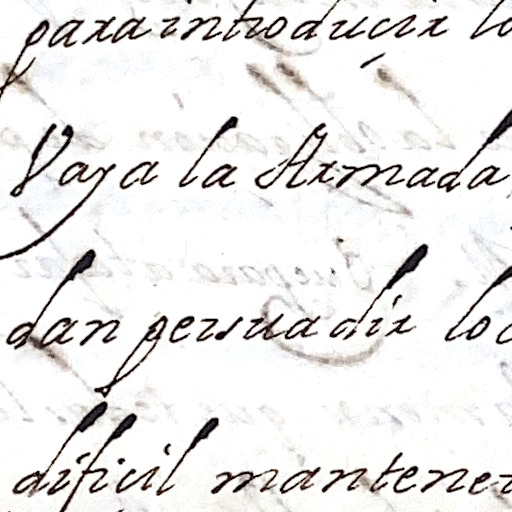 para introduçir lo
Vaya la Armada
dan persuadir lo
dificil mantener